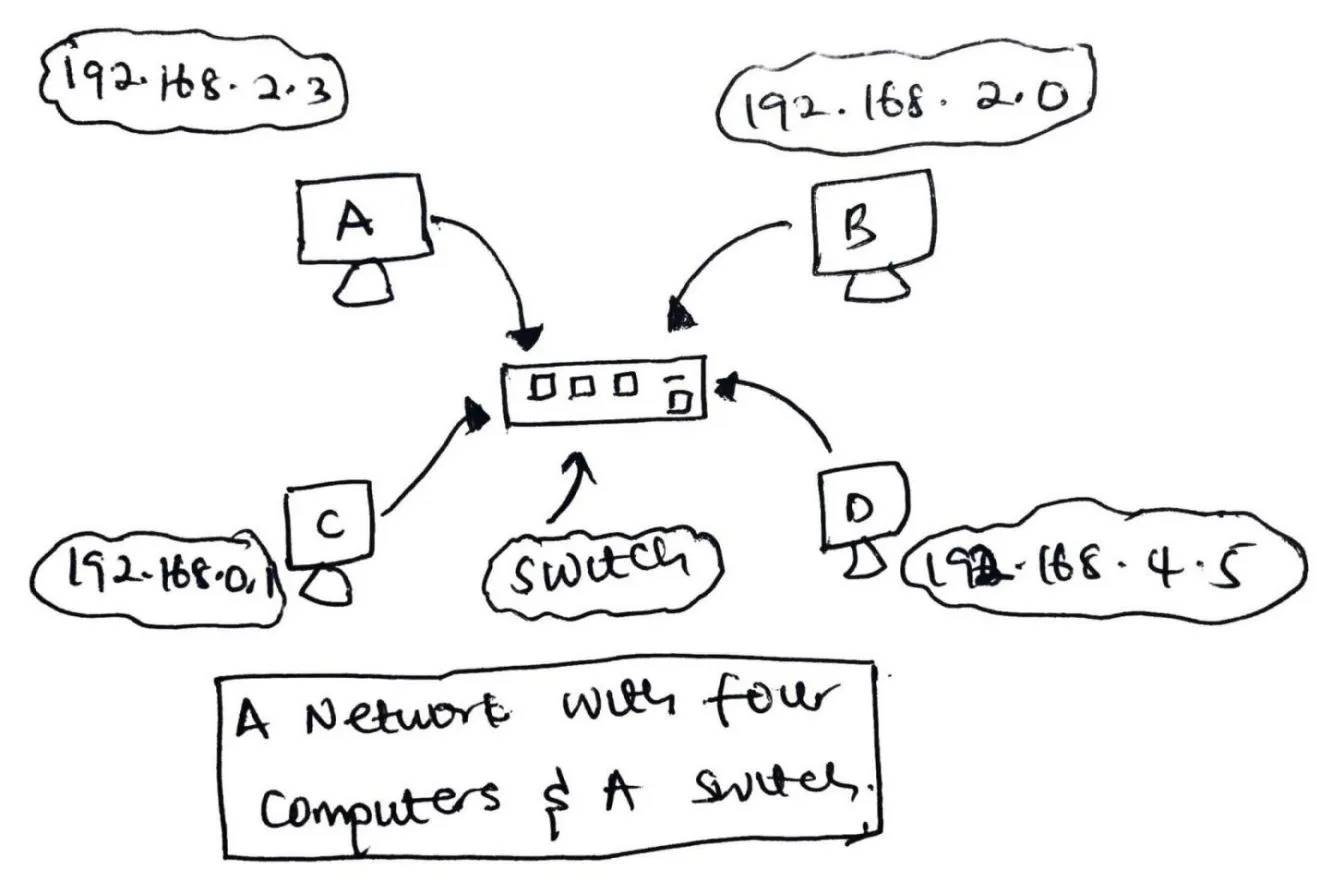 192.168.2.3
192.168.2.0
A
B
C
D
192.168.0.1
switch
192.168.4.5
A Network with four
Computers & A switch.